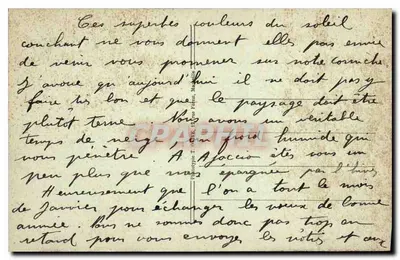 Ces superbes couleurs du soleil
couchant ne vous donnent elles pas envie
de venir vous promener sur notre corniche
J'avoue qu'aujourd'hui il ne doit pas y
faire très bon et que le paysage doit être
plutôt terne Nous avons un véritable
temps de neige, un froid humide qui
vous pénètre A Ajaccio êtes vous un
peu plus que nous épargnés par l'hiver
Heureusement que l'on a tout le mois
de Janvier pour échanger les voeux de bonne
année. Nous ne sommes donc pas trop en
retard pour vous envoyer les nôtres et aux